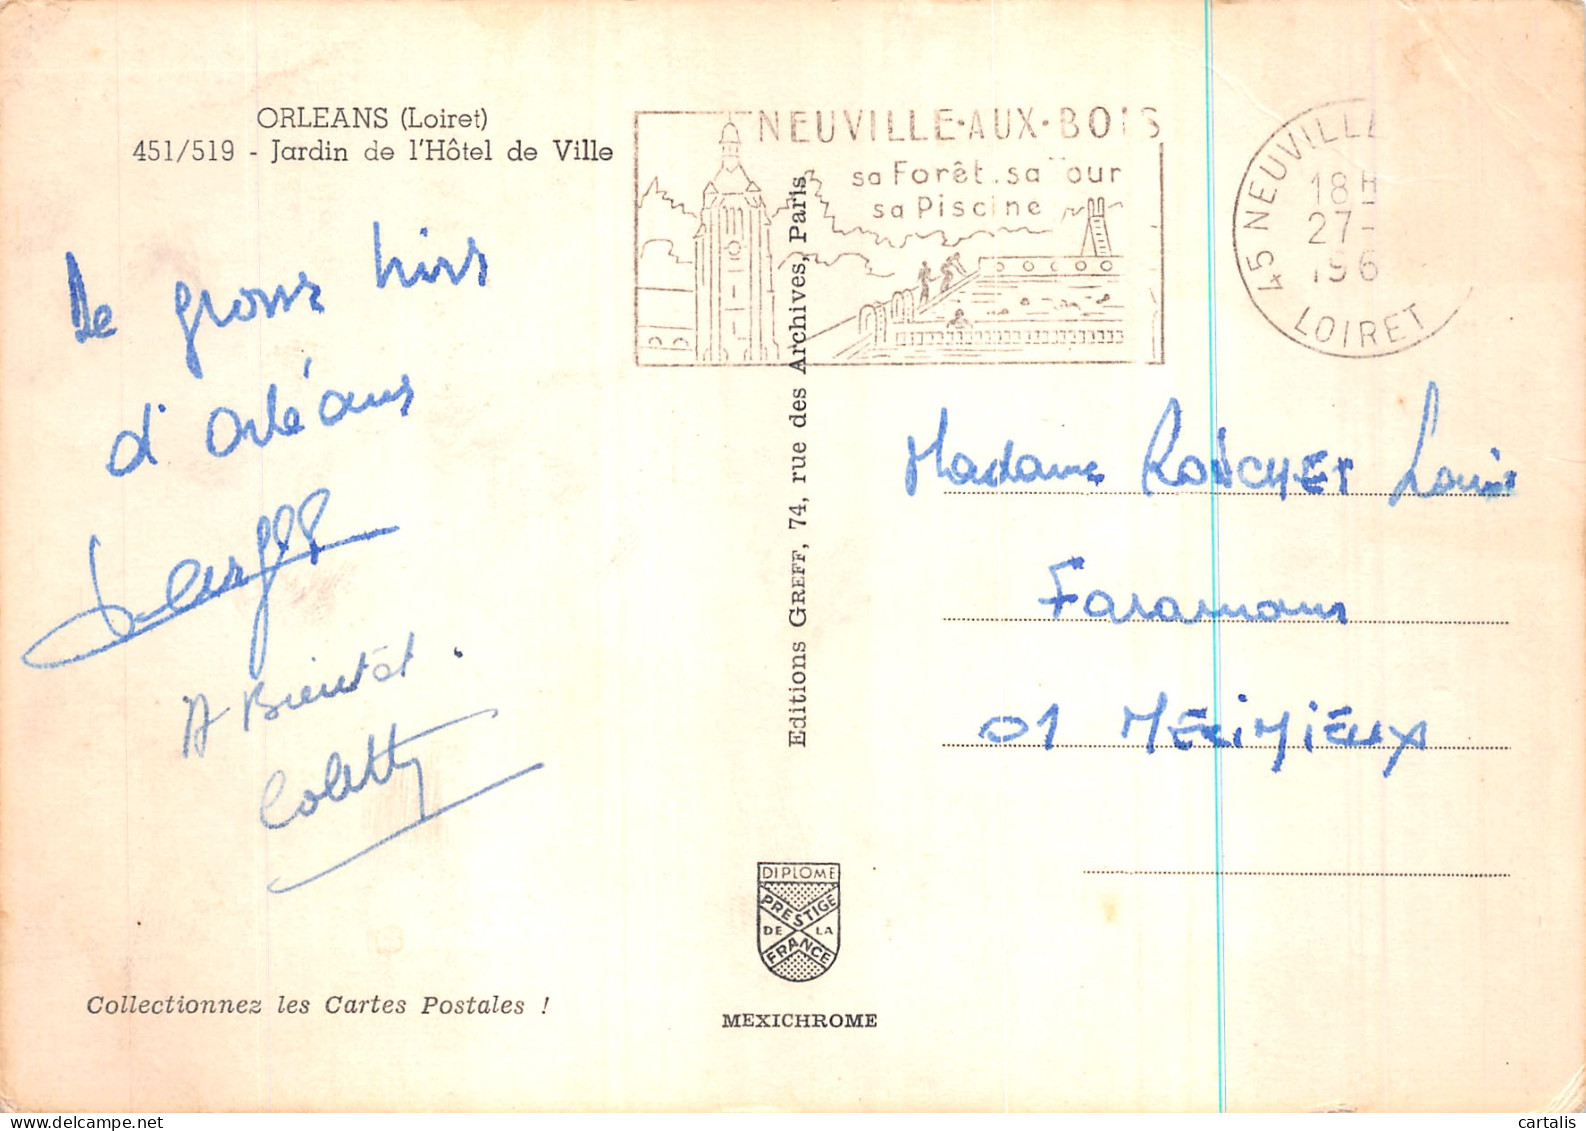 ORLEANS (Loiret)
451/519 - Jardin de l'Hôtel de Ville
NEUVILLE-AUX-BOIS
sa Forêt. sa our
sa Piscine
45 NEUVILLE
18H
27-
196
LOIRET
De grosses bises
d'Orléans
A Bientôt.
Colette
Editions GREFF, 74, rue des Archives, Paris
Madame ROSCHET Louis
Faramans
01 MEXIMIEUX
DIPLOME
PRESTIGE
DE LA
FRANCE
Collectionnez les Cartes Postales !
MEXICHROME
cartalis